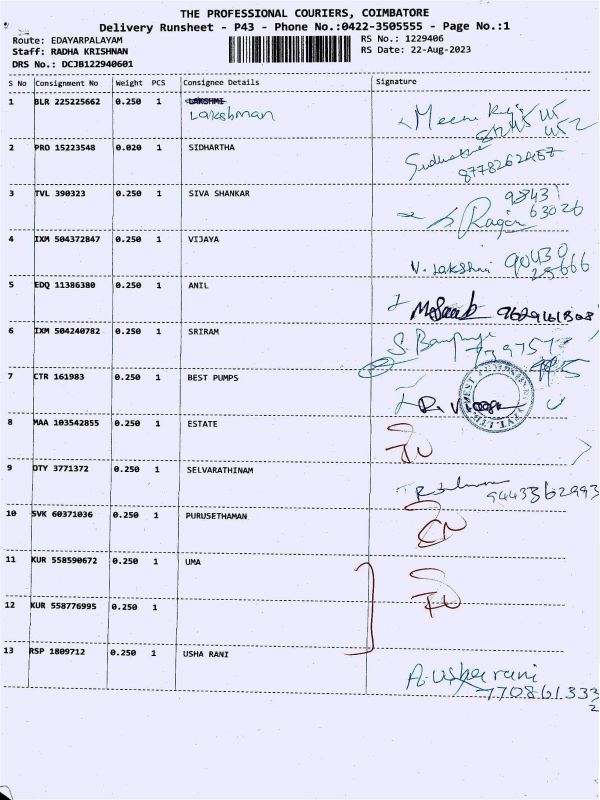 THE PROFESSIONAL COURIERS, COIMBATORE
Delivery Runsheet - P43 - Phone No.:0422-3505555 - Page No.:1
Route: EDAYARPALAYAM RS No.: 1229406
Staff: RADHA KRISHNAN RS Date: 22-Aug-2023
DRS No.: DCJB122940601
S No Consignment No Weight PCS Consignee Details Signature
1 BLR 225225662 0.250 1 LAKSHMI
Lakshman
2 PRO 15223548 0.020 1 SIDHARTHA
8778262457
3 TVL 390323 0.250 1 SIVA SHANKAR
98431
63026
4 IXM 504372847 0.250 1 VIJAYA
V. Lakshmi 90430
25666
5 EDQ 11386380 0.250 1 ANIL
6 IXM 504240782 0.250 1 SRIRAM
7 CTR 161983 0.250 1 BEST PUMPS
8 MAA 103542855 0.250 1 ESTATE
9 DTY 3771372 0.250 1 SELVARATHINAM
9443362993
10 SVK 60371036 0.250 1 PURUSETHAMAN
11 KUR 558590672 0.250 1 UMA
12 KUR 558776995 0.250 1
13 RSP 1809712 0.250 1 USHA RANI
A. Usha rani
770861333
2